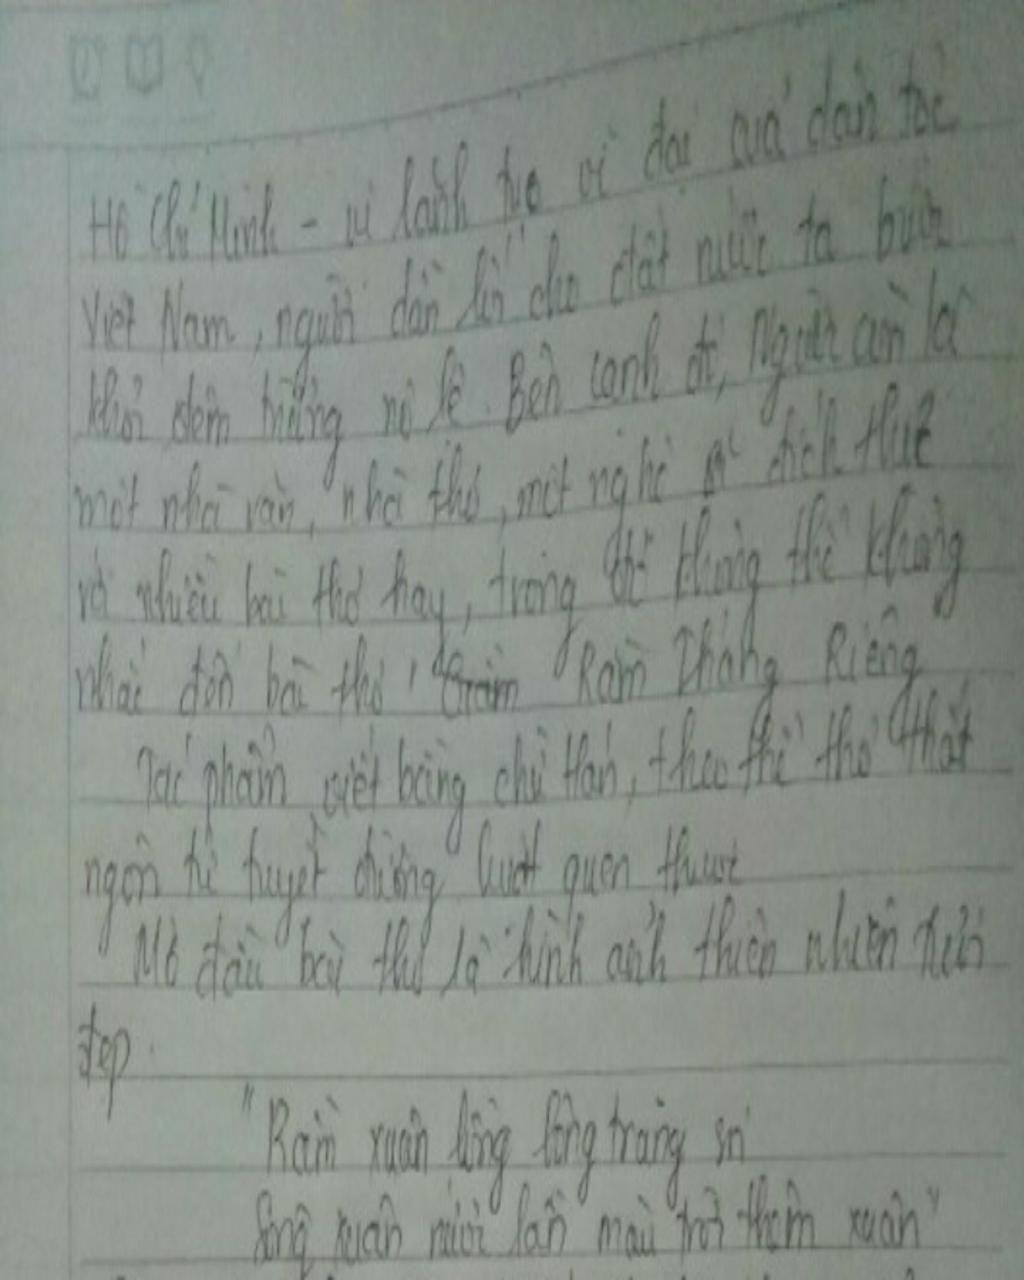 Hồ Chí Minh - vị lãnh tụ vĩ đại của dân tộc
Việt Nam, người dẫn lối cho đất nước ta bước
khỏi đêm trường nô lệ. Bên cạnh đó, Người còn là
một nhà văn, nhà thơ, một nghệ sĩ đích thực
với nhiều bài thơ hay, trong đó không thể không
nhắc đến bài thơ "Rằm Tháng Riêng
Tác phẩm viết bằng chữ Hán, theo thể thơ thất
ngôn tứ tuyệt đường luật quen thuộc
Mở đầu bài thơ là hình ảnh thiên nhiên tươi
đẹp.
"Rằm xuân lồng lộng trăng soi
Sông xuân nước lẫn màu trời thêm xuân"